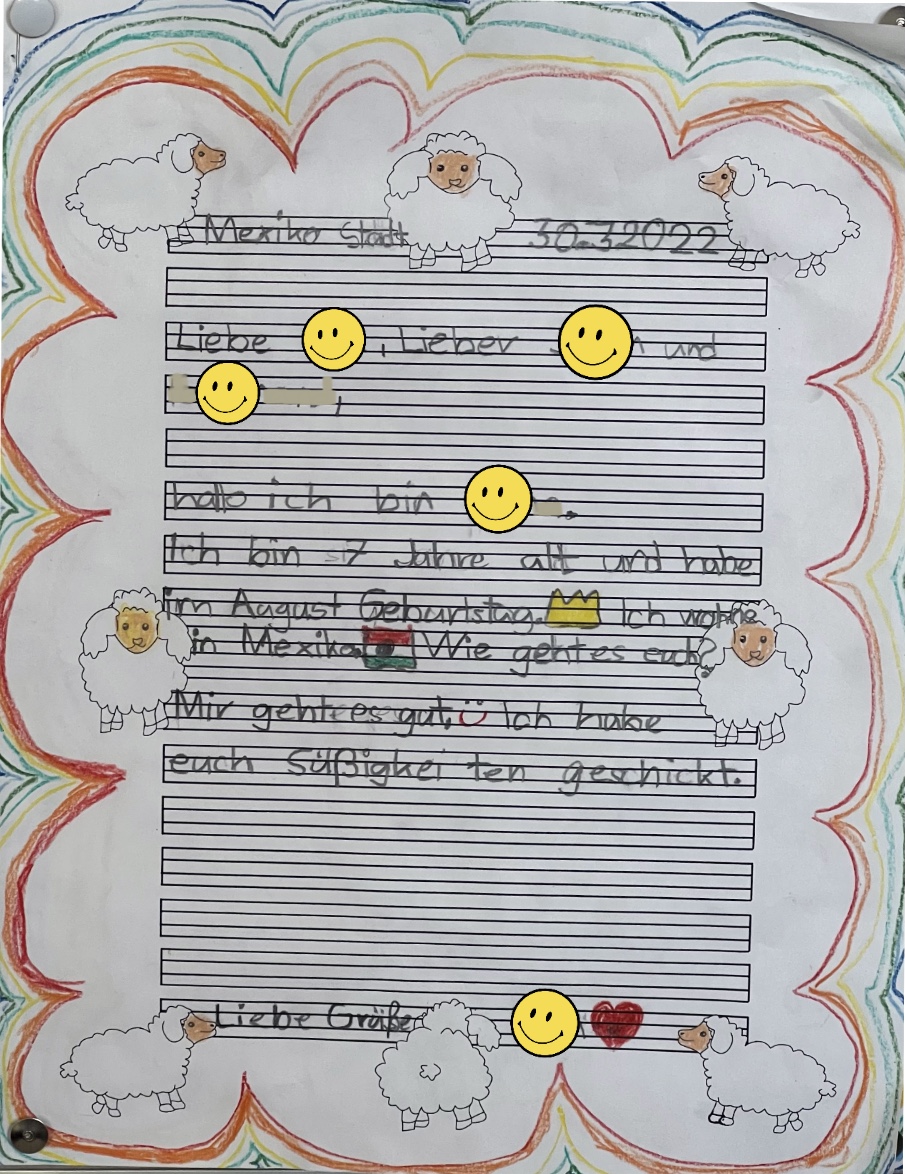 Mexiko Stadt 30.3.2022
Liebe , Lieber und
,
hallo ich bin .
Ich bin 7 Jahre alt und habe
im August Geburtstag. Ich wohne
in Mexiko. Wie geht es euch?
Mir geht es gut. Ich habe
euch Süßigkei ten geschickt.
Liebe Grüße